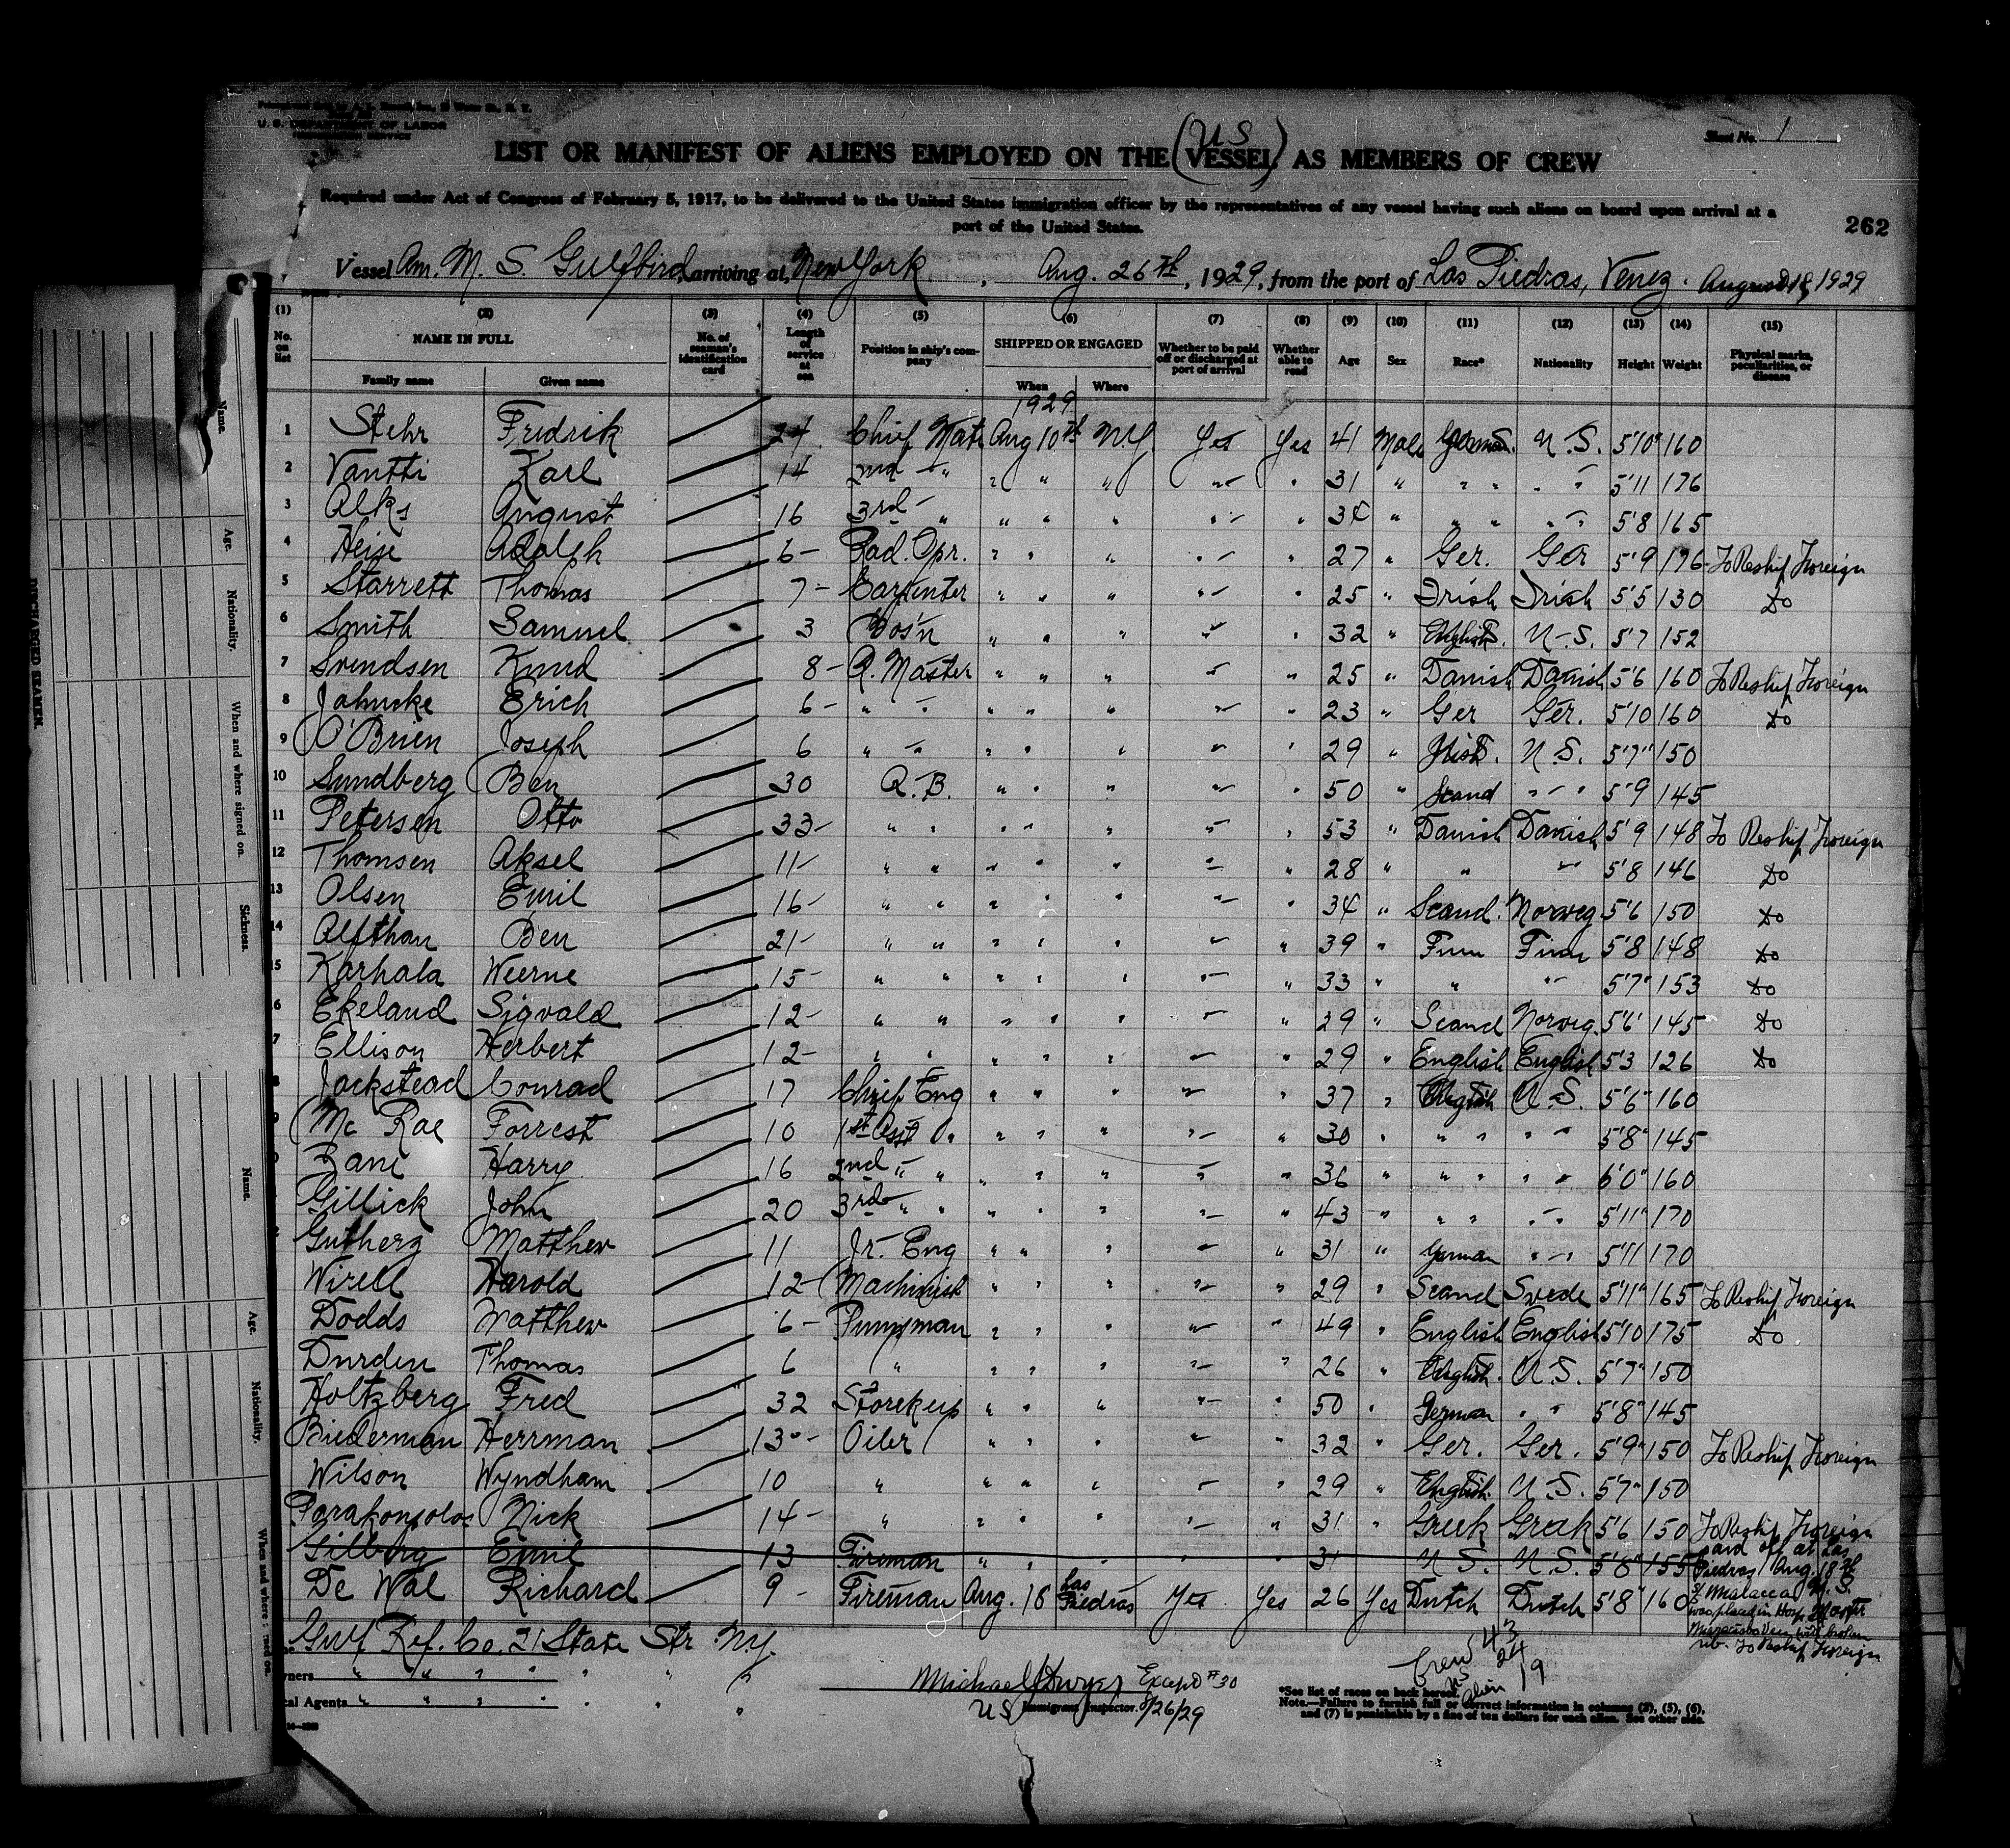 U. S. DEPARTMENT OF LABOR
Sheet No. 1
LIST OR MANIFEST OF ALIENS EMPLOYED ON THE (VESSEL) AS MEMBERS OF CREW
US
Required under Act of Congress of February 5, 1917, to be delivered to the United States immigration officer by the representatives of any vessel having such aliens on board upon arrival at a
port of the United States.
262
Vessel Am. M. S. Gulfbird, arriving at, New York, Aug. 26th, 1929, from the port of Las Piedras, Venez. August 18, 1929
(1) (2) (3) (4) (5) (6) (7) (8) (9) (10) (11) (12) (13) (14) (15)
No. on list NAME IN FULL No. of seaman's identification card Length of service at sea Position in ship's company SHIPPED OR ENGAGED Whether to be paid off or discharged at port of arrival Whether able to read Age Sex Race* Nationality Height Weight Physical marks, peculiarities, or disease
Family name Given name When Where
1929
1 Stehr Fredrik 24 Chief Mate Aug 10th N.Y. Yes Yes 41 Male German U.S. 5'10" 160
2 Vantti Karl 14 2nd " " " " " " 31 " " " " " 5'11 176
3 Alks August 16 3rd " " " " " " 34 " " " " " 5'8 165
4 Heise Adolph 6- Rad. Opr. " " " " " 27 " Ger. Ger 5'9 176 To Reship Foreign
5 Starrett Thomas 7- Carpenter " " " " " 25 " Irish Irish 5'5 130 Do
6 Smith Samuel 3 Bos'n " " " " " 32 " English U-S. 5'7 152
7 Svendsen Knud 8- Q. Master " " " " " 25 " Danish Danish 5'6 160 To Reship Foreign
8 Jahncke Erich 6- " " " " " " " 23 " Ger Ger. 5'10 160 Do
9 O'Brien Joseph 6 " " " " " " " 29 " Irish. U.S. 5'7" 150
10 Sundberg Ben 30 A.B. " " " " " 50 " Scand " " 5'9 145
11 Petersen Otto 33- " " " " " " " 53 " Danish Danish 5'9 148 To Reship Foreign
12 Thomsen Aksel 11- " " " " " " " 28 " " " 5'8 146 Do
13 Olsen Emil 16- " " " " " " " 34 " Scand. Norweg 5'6 150 Do
14 Alfthan Ben 21- " " " " " " " 39 " Finn Finn 5'8 148 Do
15 Karhala Weerne 15- " " " " " " " 33 " " " 5'7" 153 Do
6 Ekeland Sigvald 12- " " " " " " " 29 " Scand Norweg. 5'6 145 Do
7 Ellison Herbert 12- " " " " " " " 29 " English English 5'3 126 Do
8 Jackstead Conrad 17 Chief Eng " " " " " 37 " English U.S. 5'6" 160
9 Mc Rae Forrest 10 1st Asst " " " " " " 30 " " " " " 5'8" 145
0 Zane Harry 16 2nd " " " " " " " 36 " " " " " 6'0" 160
Gillick John 20 3rd " " " " " " " 43 " " " " " 5'11" 170
Gutherz Matthew 11 Jr. Eng " " " " " 31 " German " " 5'11 170
Wirell Harold 12- Machinist " " " " " 29 " Scand Swede 5'11" 165 To Reship Foreign
Dodds Matthew 6- Pumpman " " " " " 49 " English English 5'10 175 Do
Durden Thomas 6 " " " " " " 26 " English. U.S. 5'7" 150
Holtzberg Fred 32 Storekeep " " " " " 50 " German " " 5'8" 145
Biederman Herrman 13- Oiler " " " " " 32 " Ger. Ger. 5'9" 150 To Reship Foreign
Wilson Wyndham 10 " " " " " " 29 " English U.S. 5'7" 150
Nick 14- " " " " " " 31 " Greek Greek 5'6 150 To Reship Foreign
Gilberg Emil 13 Fireman " " " " " 31 U.S. U.S. 5'8" 155 paid off at Las Piedras Aug. 18th
De Wal Richard 9- Fireman Aug. 18 Las Piedras Yes. Yes 26 Yes Dutch Dutch 5'8" 160
S/ Malacca
was placed in Hosp.
Maracaibo Ven with broken
rib. To Reship Foreign
Gulf Ref. Co. 21 State Str. N.Y.
wners " " " " " "
cal Agents " " " " " "
Michael J Dwyer Except #30
US Immigrant Inspector. 8/26/29
Crew 43
US 24
Alien 19
*See list of races on back hereof.
Note.—Failure to furnish full or correct information in columns (2), (5), (6),
and (7) is punishable by a fine of ten dollars for each alien. See other side.
DISCHARGED SEAMEN
Name.
Age.
Nationality.
When and where signed on.
Sickness.
Name.
Age.
Nationality.
When and where signed on.